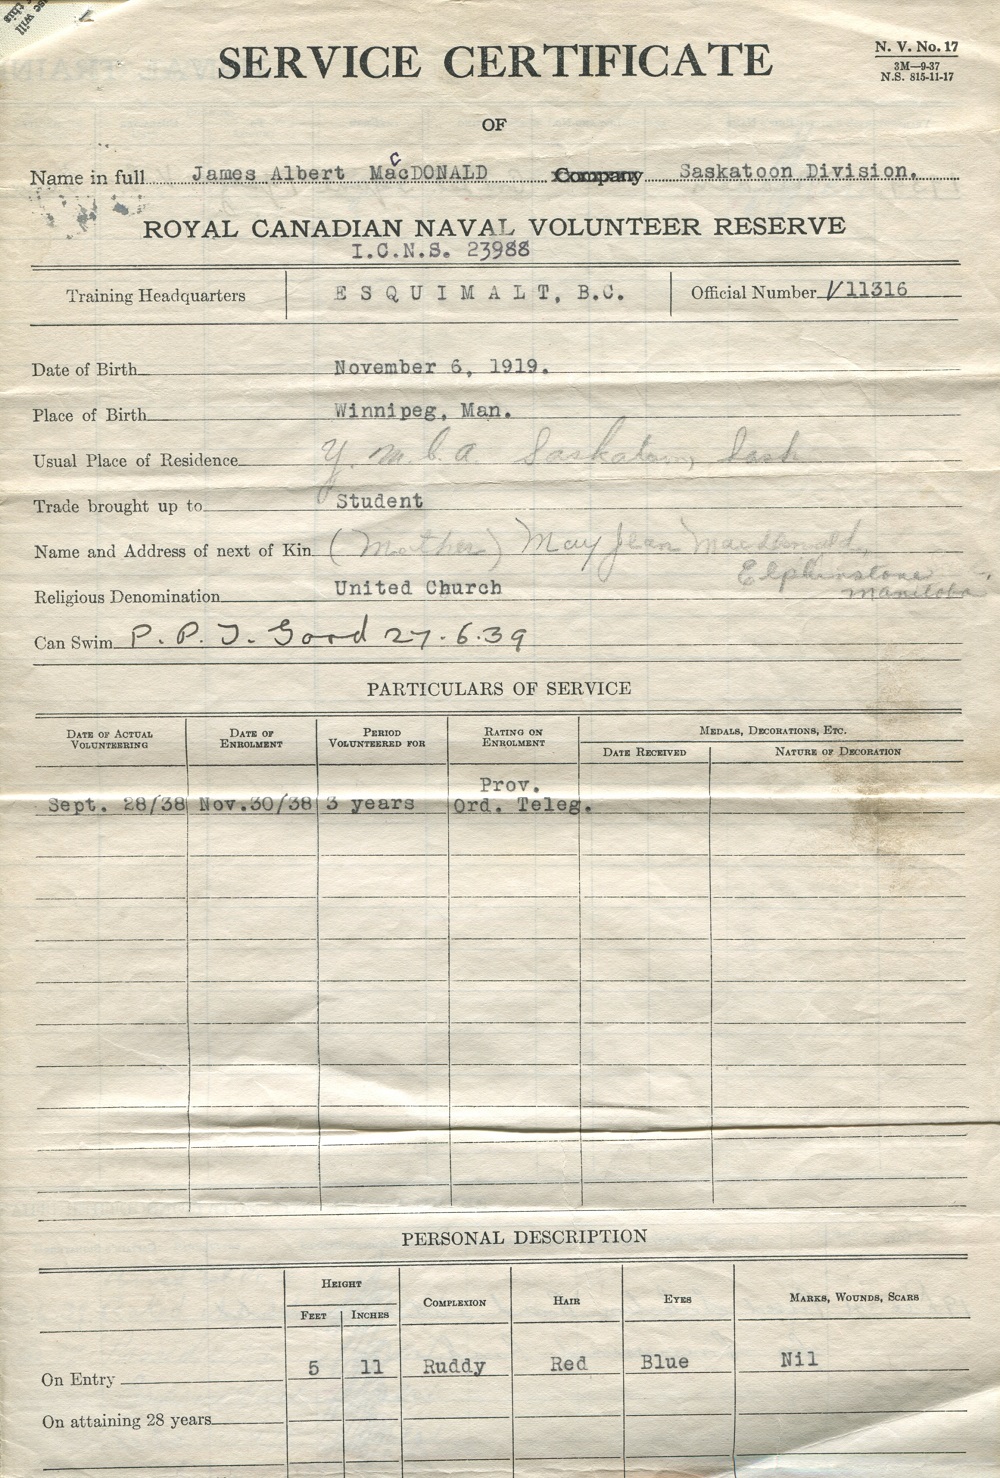 SERVICE CERTIFICATE
N. V. No. 17
3M—9-37
N.S. 815-11-17
OF
Name in full James Albert MacDONALD Company Saskatoon Division.
c
ROYAL CANADIAN NAVAL VOLUNTEER RESERVE
I.C.N.S. 23988
Training Headquarters ESQUIMALT, B.C. Official Number V11316
Date of Birth November 6, 1919.
Place of Birth Winnipeg, Man.
Usual Place of Residence Y.M.C.A. Saskatoon, Sask
Trade brought up to Student
Name and Address of next of Kin (Mother) May Jean Macdonald,
Elphinstone
Manitoba
Religious Denomination United Church
Can Swim P. P. T. Good 27.6.39
PARTICULARS OF SERVICE
DATE OF ACTUAL VOLUNTEERING DATE OF ENROLMENT PERIOD VOLUNTEERED FOR RATING ON ENROLMENT MEDALS, DECORATIONS, ETC.
DATE RECEIVED NATURE OF DECORATION
Prov.
Sept. 28/38 Nov.30/38 3 years Ord. Teleg.
PERSONAL DESCRIPTION
HEIGHT COMPLEXION HAIR EYES MARKS, WOUNDS, SCARS
FEET INCHES
On Entry 5 11 Ruddy Red Blue Nil
On attaining 28 years